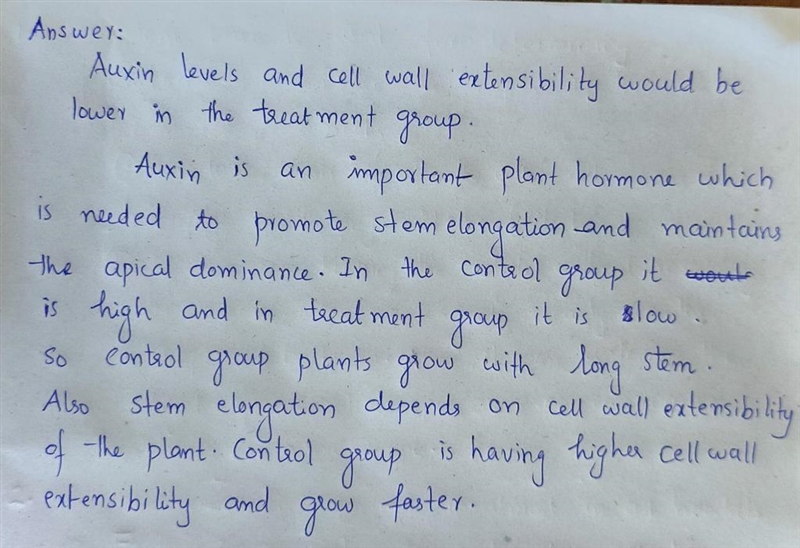 Answer:
Auxin levels and cell wall extensibility would be
lower in the treatment group.
Auxin is an important plant hormone which
is needed to promote stem elongation and maintains
the apical dominance. In the control group it
is high and in treatment group it is low.
So control group plants grow with long stem.
Also stem elongation depends on cell wall extensibility
of the plant. Control group is having higher cell wall
extensibility and grow faster.